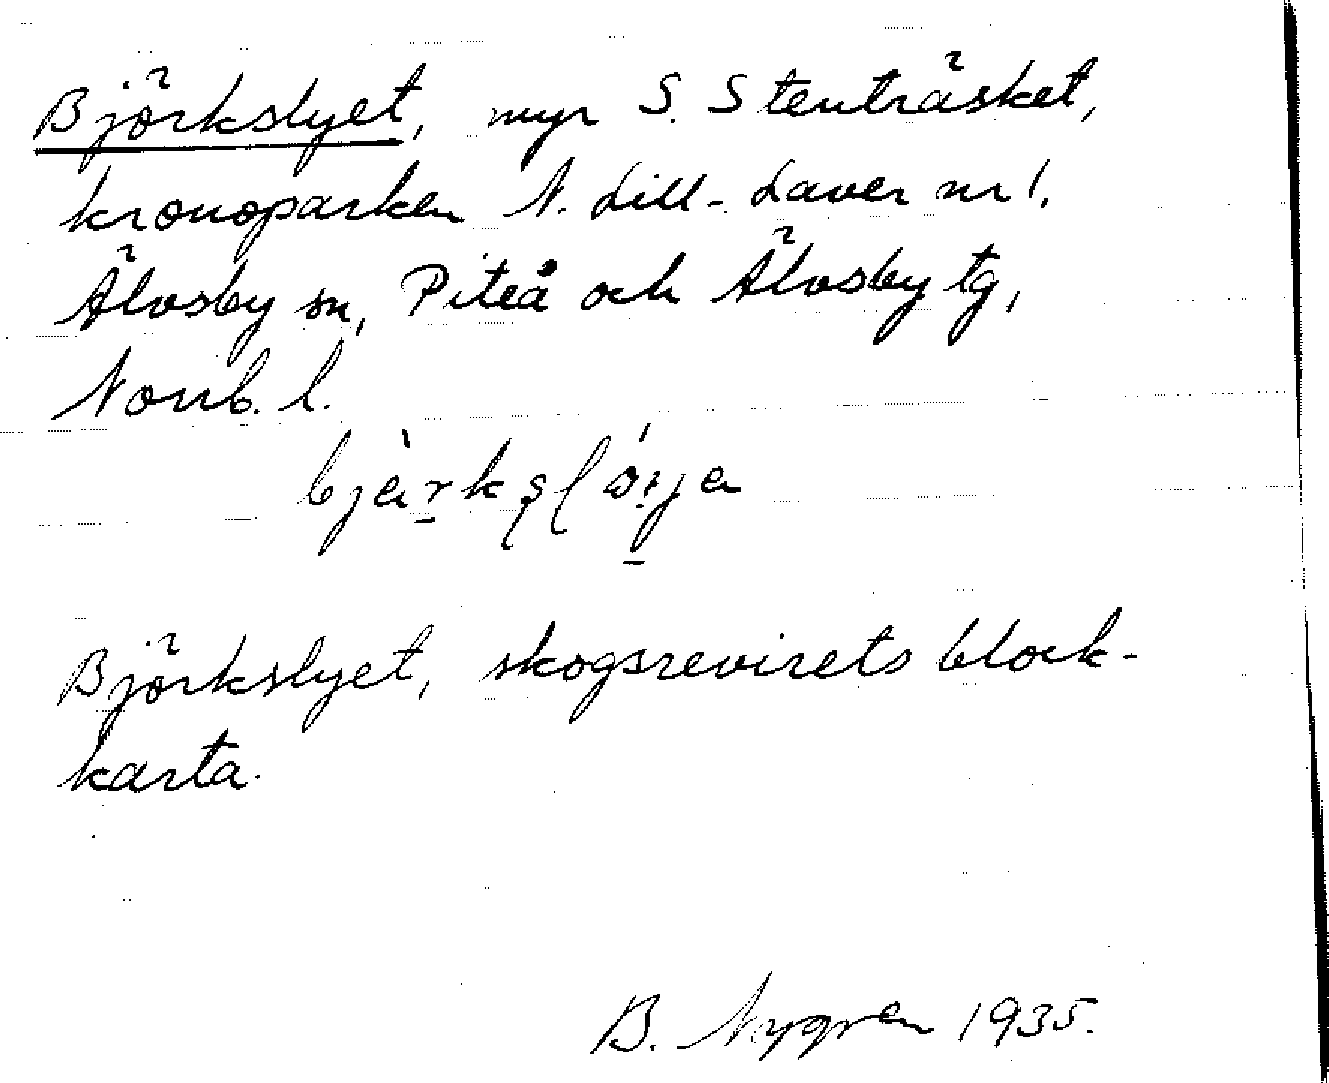 Björkslyet, myr S. Stenträsket,
kronoparken N. Lill-Laver nr 1.
Älvsby sn, Piteå och Älvsby tg,
Norrb. l.
Björkslyet, skogsrevirets block-
karta.
B. Nygren 1935.